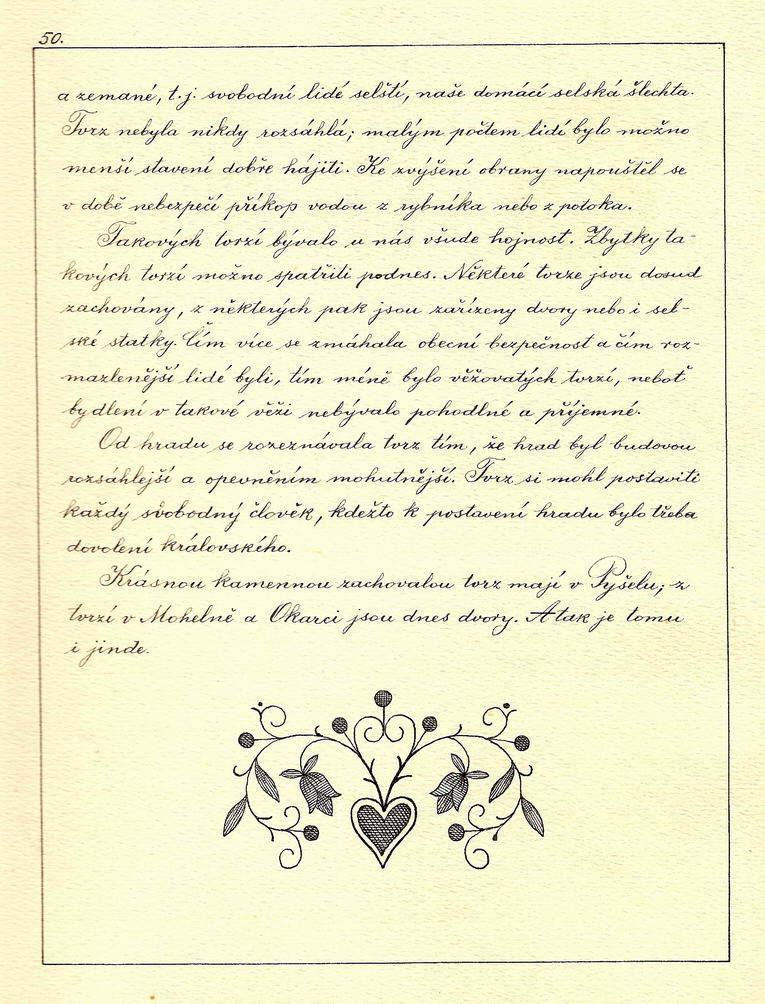 50.
a zemané, t. j. svobodní lidé selští, naše domácí selská šlechta.
Tvrz nebyla nikdy rozsáhlá; malým počtem lidí bylo možno
menší stavení dobře hájiti. Ke zvýšení obrany napouštěl se
v době nebezpečí příkop vodou z rybníka nebo z potoka.
Takových tvrzí bývalo u nás všude hojnost. Zbytky ta-
kových tvrzí možno spatřiti podnes. Některé tvrze jsou dosud
zachovány, z některých pak jsou zařízeny dvory nebo i sel-
ské statky. Čím více se zmáhala obecní bezpečnost a čím roz-
mazlenější lidé byli, tím méně bylo věžovatých tvrzí, neboť
bydlení v takové věži nebývalo pohodlné a příjemné.
Od hradu se rozeznávala tvrz tím, že hrad byl budovou
rozsáhlejší a opevněním mohutnější. Tvrz si mohl postaviti
každý svobodný člověk, kdežto k postavení hradu bylo třeba
dovolení královského.
Krásnou kamennou zachovalou tvrz mají v Pyšelu; z
tvrzí v Mohelně a Okarci jsou dnes dvory. A tak je tomu
i jinde.